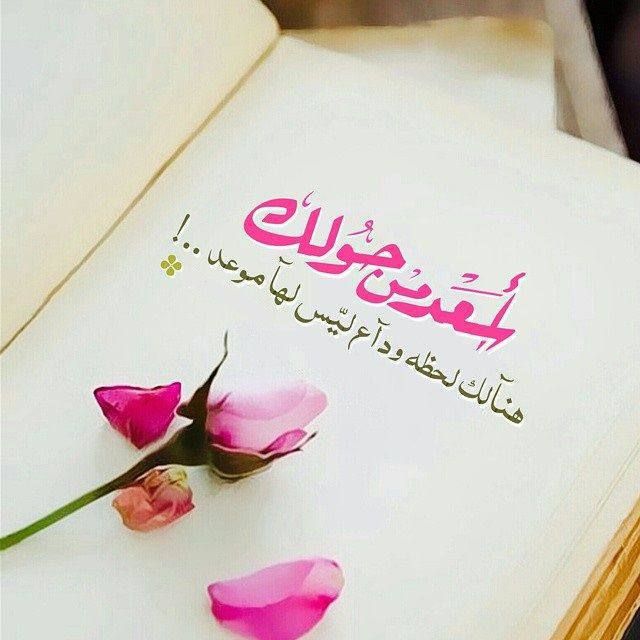 أسعد من حولك
هنآلك لحظه ودآع ليّس لهآ موعد ..!